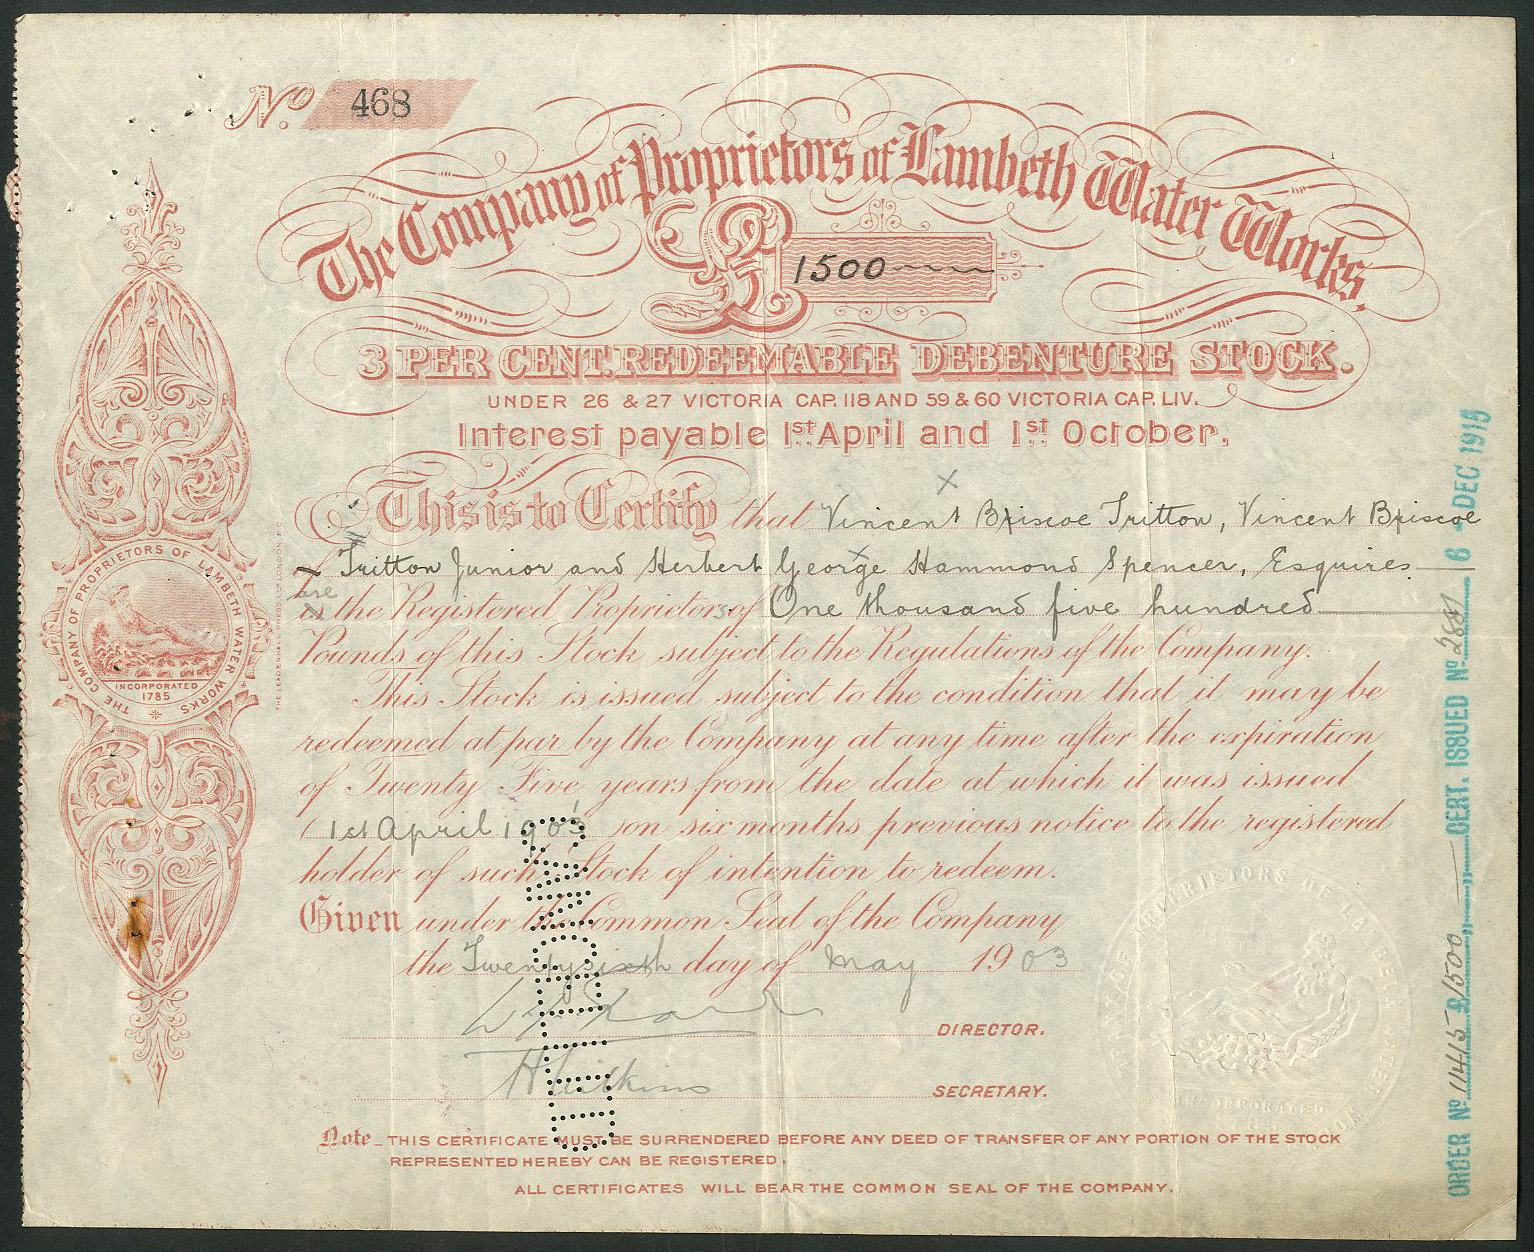 No. 468
The Company of Proprietors of Lambeth Water Works.
£ 1500
3 PER CENT. REDEEMABLE DEBENTURE STOCK.
UNDER 26 & 27 VICTORIA CAP. 118 AND 59 & 60 VICTORIA CAP. LIV.
Interest payable 1st April and 1st October.
This is to Certify that Vincent Briscoe Tritton, Vincent Briscoe
Tritton Junior and Herbert George Hammond Spencer, Esquires
are
is the Registered Proprietors of One thousand five hundred
Pounds of this Stock subject to the Regulations of the Company.
This Stock is issued subject to the condition that it may be
redeemed at par by the Company at any time after the expiration
of Twenty Five years from the date at which it was issued
(1st April 1903) on six months previous notice to the registered
holder of such Stock of intention to redeem.
Given under the Common Seal of the Company
the Twentysixth day of May 1903
DIRECTOR.
SECRETARY.
Note_ THIS CERTIFICATE MUST BE SURRENDERED BEFORE ANY DEED OF TRANSFER OF ANY PORTION OF THE STOCK
REPRESENTED HEREBY CAN BE REGISTERED.
ALL CERTIFICATES WILL BEAR THE COMMON SEAL OF THE COMPANY.
CANCELLED
THE COMPANY OF PROPRIETORS OF LAMBETH WATER WORKS
INCORPORATED
1785
ORDER No 11415 B/500 CERT. ISSUED No 6 - DEC 1915
PROPRIETORS OF
INCORPORATED